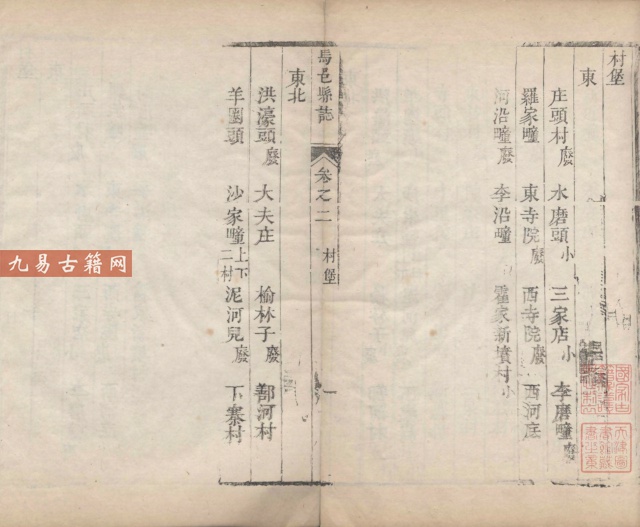 村堡
東
庄頭村廢 水磨頭小 三家店小 李磨疃廢
羅家疃 東寺院廢 西寺院廢 西河底
河沿疃廢 李沿疃 霍家新墳村小
馬邑縣誌 卷之二 村堡 一
東北
洪濠頭廢 大夫庄 榆林子廢 鄯河村
羊圈頭 沙家疃上下二村 泥河兒廢 下寨村
九易古籍网